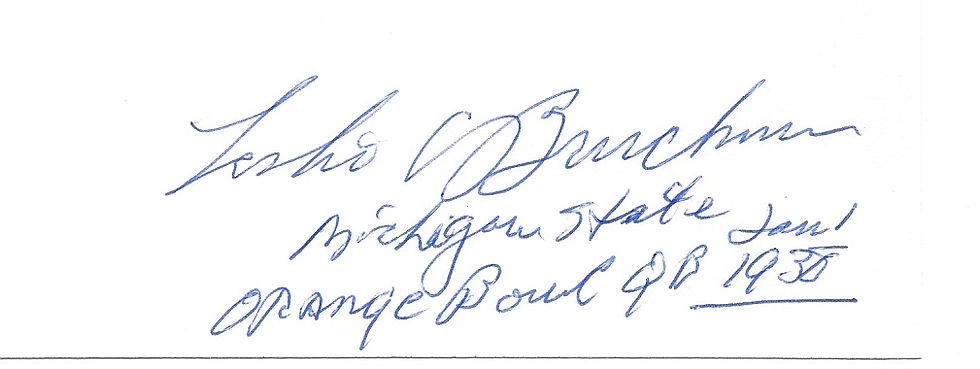 Leslie Bruckner
Michigan State Jan 1
ORANGE Bowl QB 1938